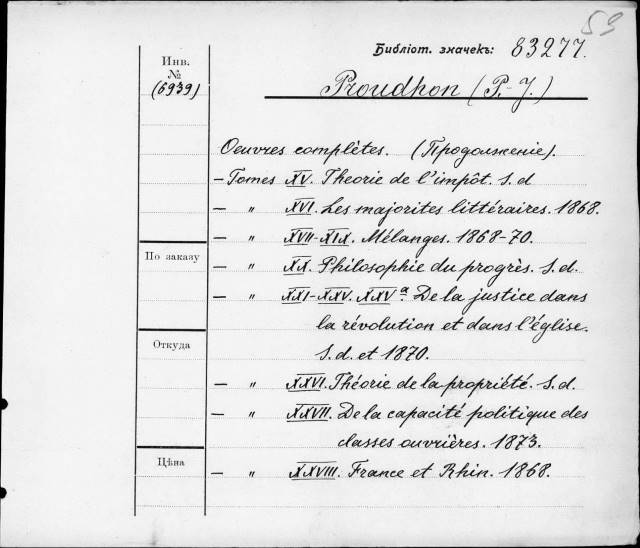 59
Библіот. значекъ: 83277.
Инв.
№
(6939)
Proudhon (P.-J.)
Oeuvres complètes. (Продолженіе).
— Tomes XV. Theorie de l'impôt. S. d
— " XVI. Les majorites littéraires. 1868.
— " XVII-XIX. Mélanges. 1868-70.
По заказу
— " XX. Philosophie du progrès. S. d.
— " XXI-XXV. XXVa. De la justice dans
la révolution et dans l'église.
S. d. et 1870.
Откуда
— " XXVI. Théorie de la propriété. S. d.
— " XXVII. De la capacité politique des
classes ouvrières. 1873.
Цѣна
— " XXVIII. France et Rhin. 1868.